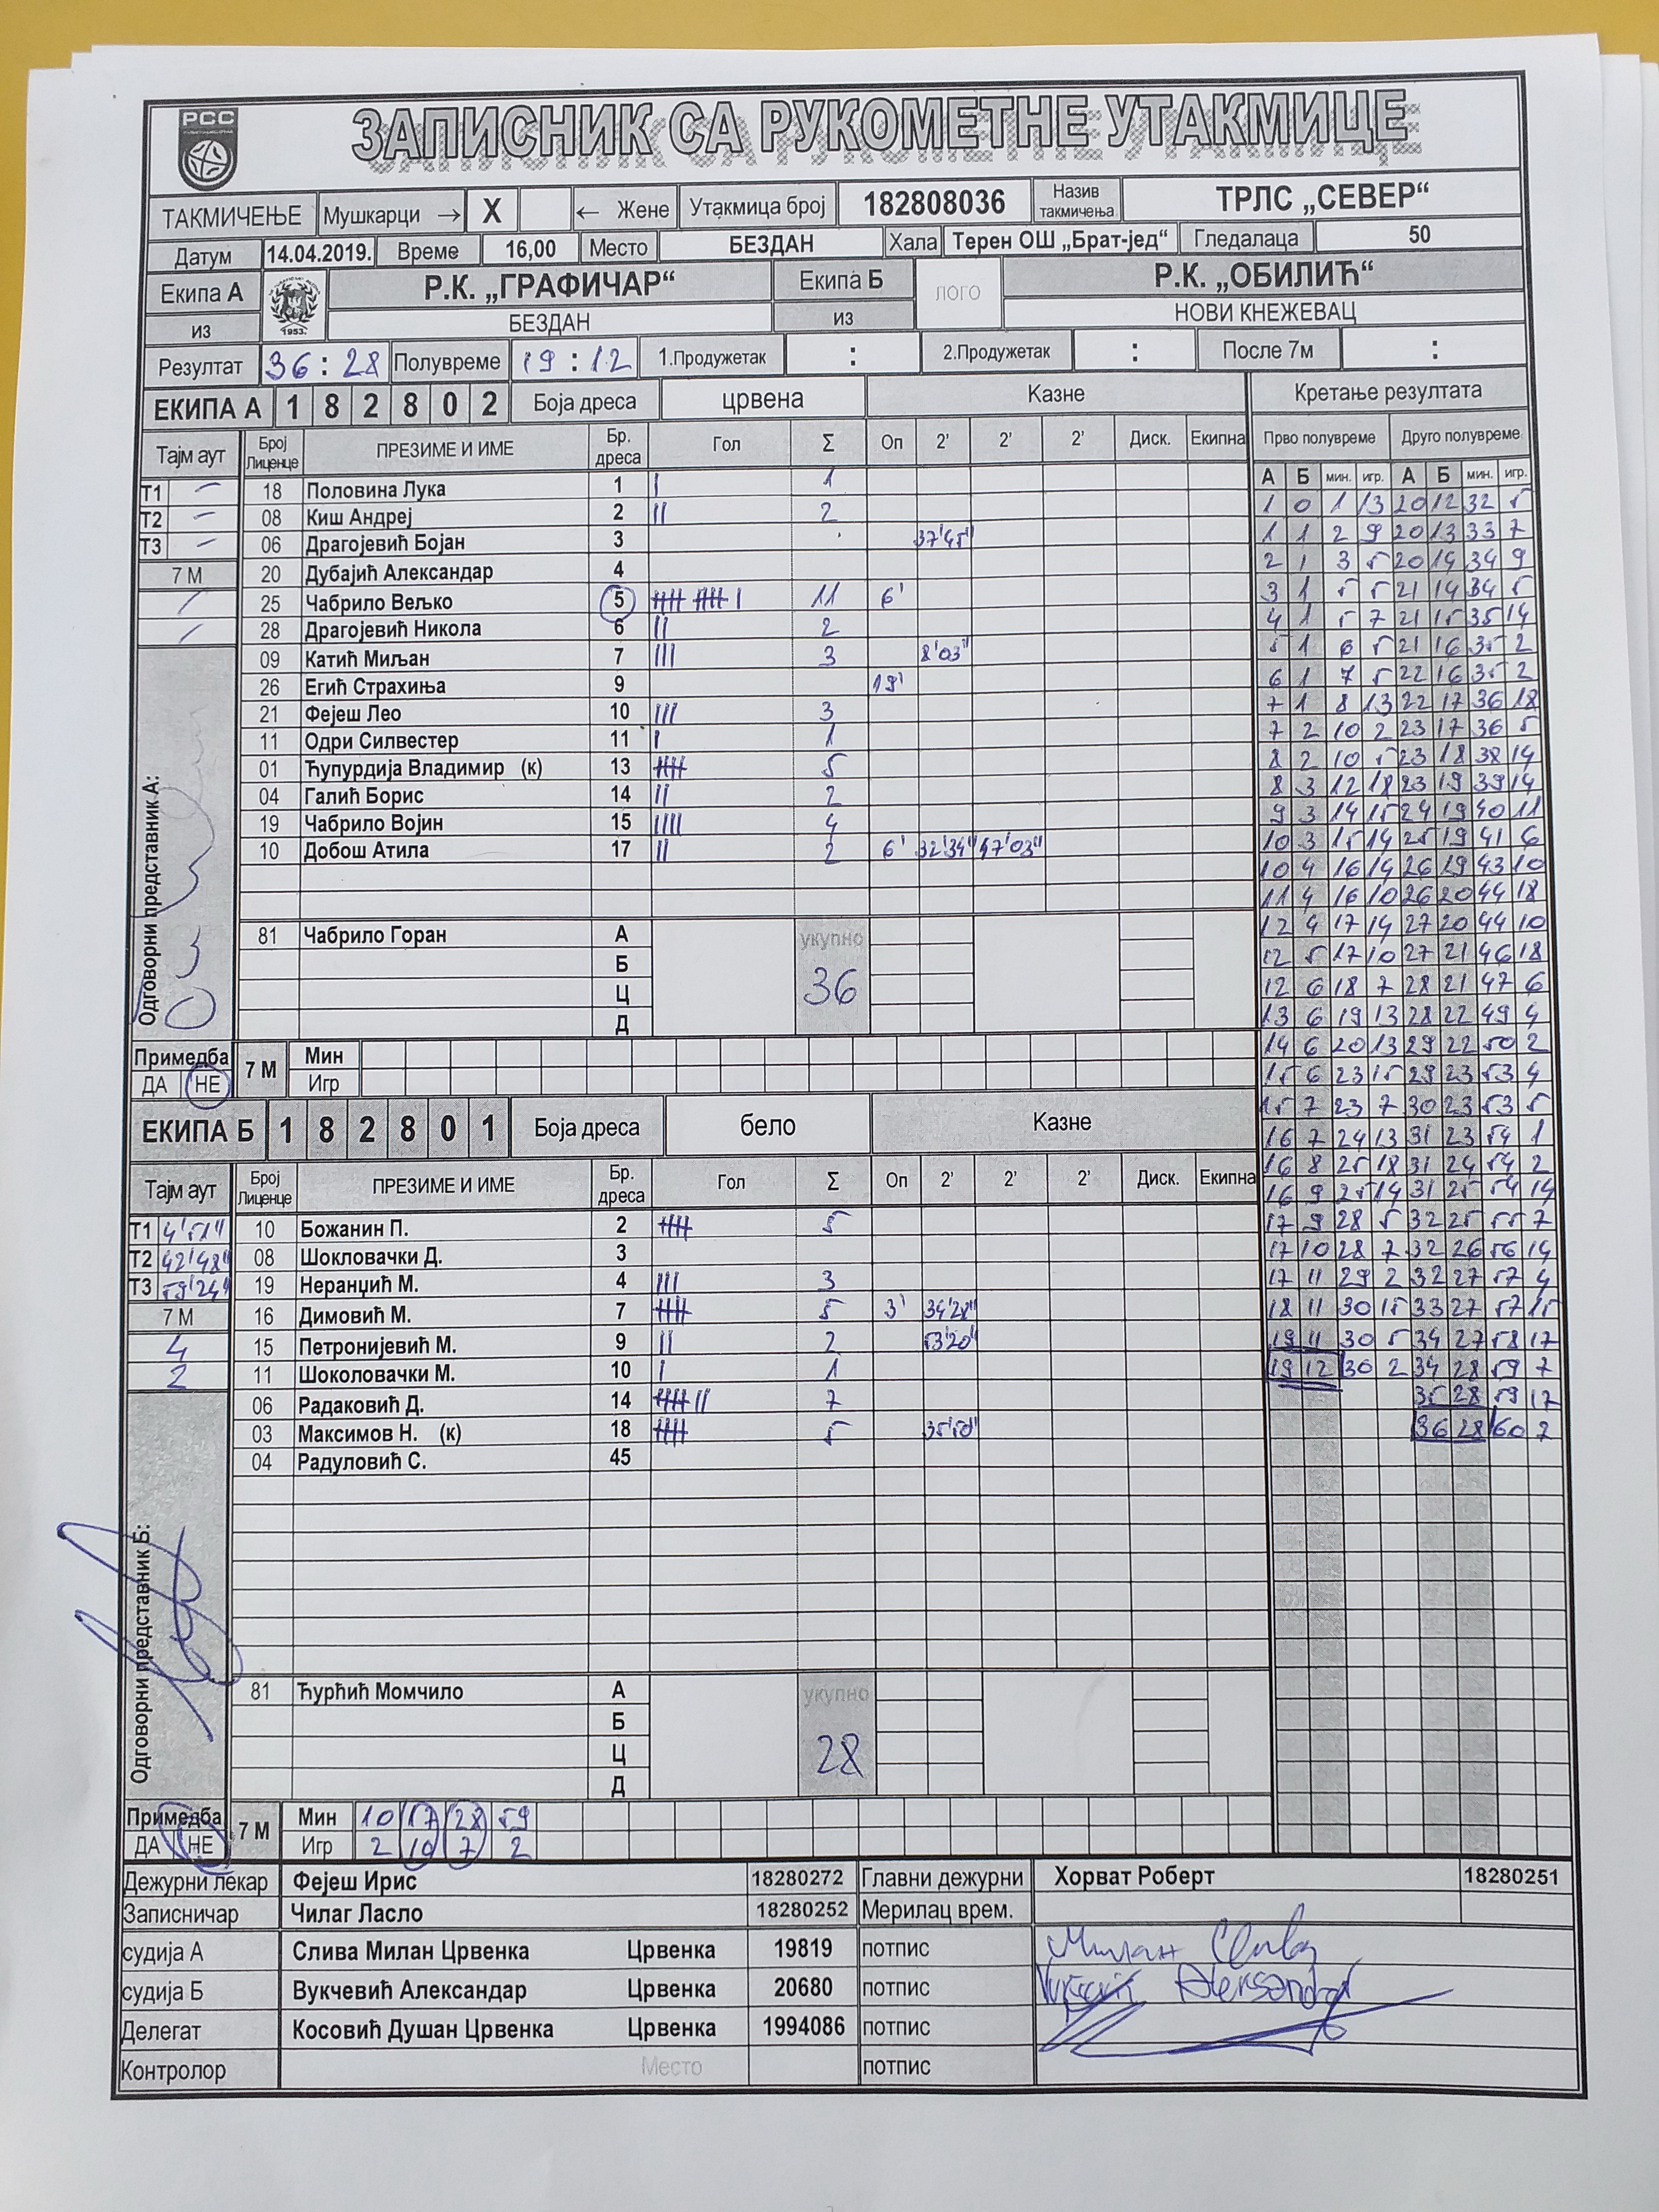 РСС
ЗАПИСНИК СА РУКОМЕТНЕ УТАКМИЦЕ
ТАКМИЧЕЊЕ Мушкарци → X ← Жене Утакмица број 182808036 Назив такмичења ТРЛС „СЕВЕР“
Датум 14.04.2019. Време 16,00 Место БЕЗДАН Хала Терен ОШ „Брат-јед“ Гледалаца 50
Екипа А Р.К. „ГРАФИЧАР“ Екипа Б ЛОГО Р.К. „ОБИЛИЋ“
из 1953. БЕЗДАН из НОВИ КНЕЖЕВАЦ
Резултат 36 : 28 Полувреме 19 : 12 1.Продужетак : 2.Продужетак : После 7м :
ЕКИПА А 1 8 2 8 0 2 Боја дреса црвена Казне
Тајм аут Број Лиценце ПРЕЗИМЕ И ИМЕ Бр. дреса Гол Σ Оп 2' 2' 2' Диск. Екипна
Т1 – 18 Половина Лука 1 I 1
Т2 – 08 Киш Андреј 2 II 2
Т3 – 06 Драгојевић Бојан 3 37'45"
7 М 20 Дубајић Александар 4
/ 25 Чабрило Вељко 5 IIIII IIIII I 11 6'
/ 28 Драгојевић Никола 6 II 2
09 Катић Миљан 7 III 3 8'03"
26 Егић Страхиња 9 19'
21 Фејеш Лео 10 III 3
11 Одри Силвестер 11 I 1
01 Ћупурдија Владимир (к) 13 IIIII 5
04 Галић Борис 14 II 2
19 Чабрило Војин 15 IIII 4
10 Добош Атила 17 II 2 6' 32'34" 47'03"
Одговорни представник А:
81 Чабрило Горан А укупно
Б
Ц 36
Д
Примедба 7 М Мин
ДА НЕ Игр
ЕКИПА Б 1 8 2 8 0 1 Боја дреса бело Казне
Тајм аут Број Лиценце ПРЕЗИМЕ И ИМЕ Бр. дреса Гол Σ Оп 2' 2' 2' Диск. Екипна
Т1 4'51" 10 Божанин П. 2 IIIII 5
Т2 42'48" 08 Шокловачки Д. 3
Т3 59'24" 19 Неранџић М. 4 III 3
7 М 16 Димовић М. 7 IIIII 5 3' 34'28"
4 15 Петронијевић М. 9 II 2 53'20"
2 11 Шоколовачки М. 10 I 1
06 Радаковић Д. 14 IIIII II 7
03 Максимов Н. (к) 18 IIIII 5 35'50"
04 Радуловић С. 45
Одговорни представник Б:
81 Ћурћић Момчило А укупно
Б
Ц 28
Д
Примедба 7 М Мин 10 17 28 59
ДА НЕ Игр 2 10 7 2
Кретање резултата
Прво полувреме Друго полувреме
А Б мин. игр. А Б мин. игр.
1 0 1 13 20 12 32 5
1 1 2 9 20 13 33 7
2 1 3 5 20 14 34 9
3 1 5 5 21 14 34 5
4 1 5 7 21 15 35 14
5 1 6 5 21 16 35 2
6 1 7 5 22 16 35 2
7 1 8 13 22 17 36 18
7 2 10 2 23 17 36 5
8 2 10 5 23 18 38 14
8 3 12 18 23 19 39 14
9 3 14 15 24 19 40 11
10 3 15 14 25 19 41 6
10 4 16 14 26 19 43 10
11 4 16 10 26 20 44 18
12 4 17 14 27 20 44 10
12 5 17 10 27 21 46 18
12 6 18 7 28 21 47 6
13 6 19 13 28 22 49 4
14 6 20 13 29 22 50 2
15 6 23 15 29 23 53 4
15 7 23 7 30 23 53 5
16 7 24 13 31 23 54 1
16 8 25 18 31 24 54 2
16 9 25 14 31 25 54 14
17 9 28 5 32 25 55 7
17 10 28 7 32 26 56 14
17 11 29 2 32 27 57 4
18 11 30 15 33 27 57 15
19 11 30 5 34 27 58 17
19 12 30 2 34 28 59 7
35 28 59 17
36 28 60 7
Дежурни лекар Фејеш Ирис 18280272 Главни дежурни Хорват Роберт 18280251
Записничар Чилаг Ласло 18280252 Мерилац врем.
судија А Слива Милан Црвенка Црвенка 19819 потпис Милан
судија Б Вукчевић Александар Црвенка 20680 потпис Aleksandar
Делегат Косовић Душан Црвенка Црвенка 1994086 потпис
Контролор Место потпис